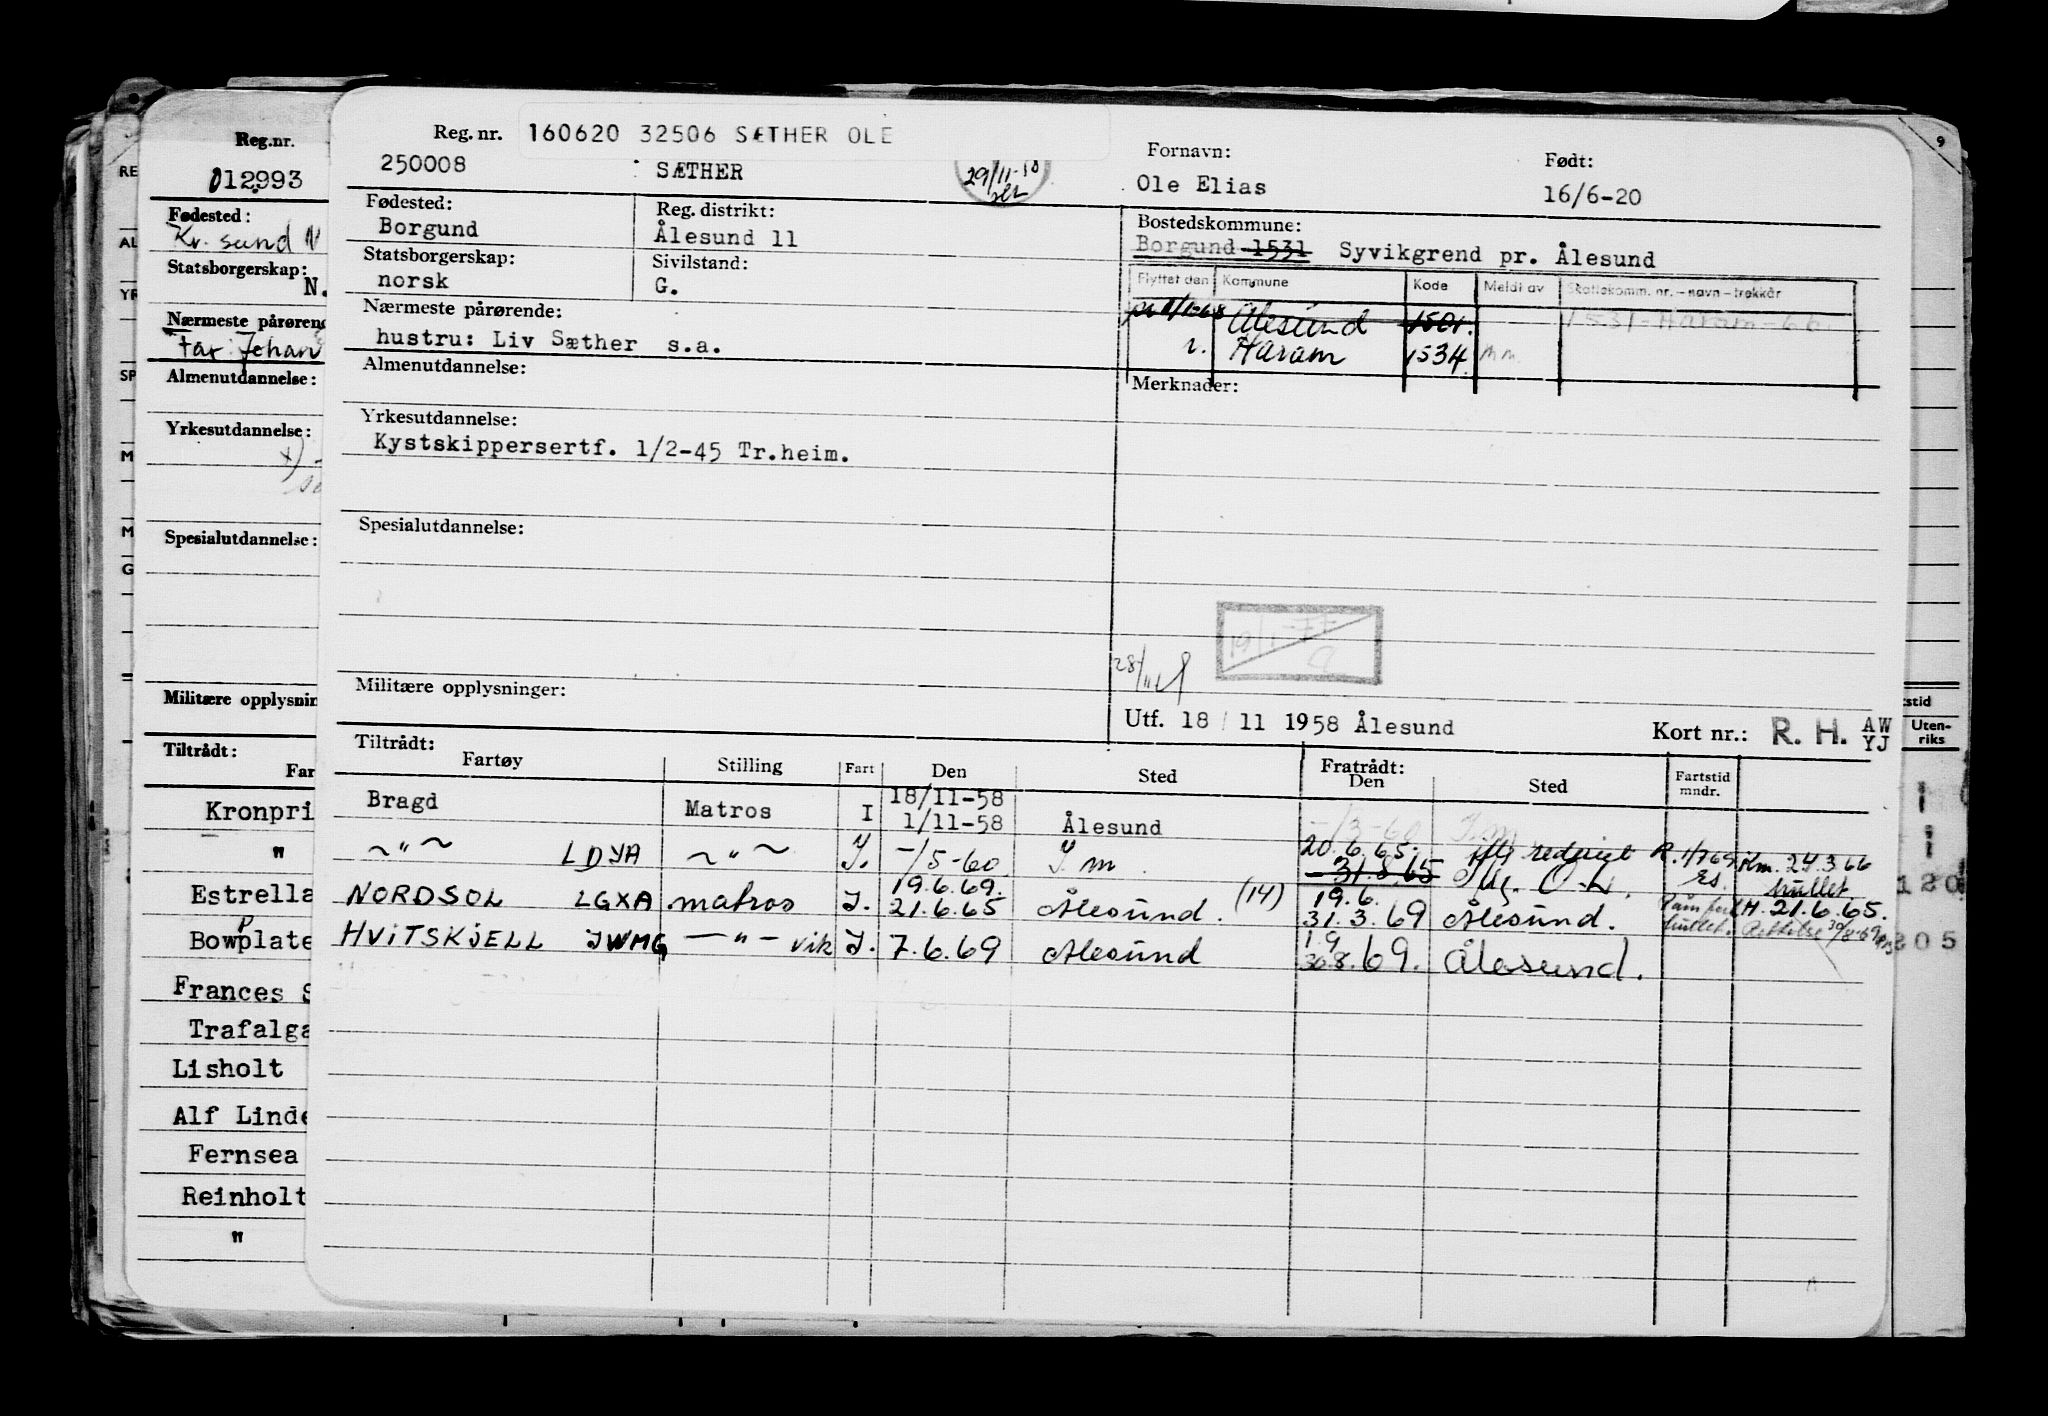 Reg. nr. 160620 32506 SÆTHER OLE
250008 SÆTHER
29/11-58
Fornavn:
Ole Elias
Født:
16/6-20
Fødested:
Borgund
Reg. distrikt:
Ålesund 11
Bostedskommune:
Borgund 1531 Syvikgrend pr. Ålesund
Statsborgerskap:
norsk
Sivilstand:
G.
Flyttet den Kommune Kode Meldt av Skattekomm. nr. – navn – trekkår
Ålesund 1501. 1531-Haram-66
Haram 1534
Nærmeste pårørende:
hustru: Liv Sæther s.a.
Almenutdannelse:
Merknader:
Yrkesutdannelse:
Kystskippersertf. 1/2-45 Tr.heim.
Spesialutdannelse:
19/1-77
28/11
Militære opplysninger:
Utf. 18 / 11 1958 Ålesund
Kort nr.: R. H. AW
YJ
Tiltrådt:
Fartøy Stilling Fart Den Sted
Fratrådt:
Den Sted Fartstid
mndr.
Bragd Matros I 18/11-58
1/11-58 Ålesund -/3-60 I.m
" LDYA " I. -/5-60 I m 20.6.65. 31.8.65 Km. 24.3.66
hullet
NORDSOL LGXA matros I. 19.6.69.
21.6.65 Ålesund. (14) 19.6.
31.3.69 Ålesund. H. 21.6.65.
hullet. Rettelse 30/8-69
HVITSKJELL JWMG — " — vik I. 7.6.69 Ålesund 1.9
30.8.69. Ålesund.
Reg.nr.
012993
Fødested:
Kr. sund N
Statsborgerskap:
N.
Nærmeste pårørend
far Johan
Almenutdannelse:
Yrkesutdannelse:
Spesialutdannelse:
Militære opplysnin
Tiltrådt:
Far
Kronpri
"
Estrella
Bowplate
Frances S
Trafalga
Lisholt
Alf Linde
Fernsea
Reinholt
"
RE
AL
YR
SP
M
M
G
9
tstid
Uten-
riks
120
805